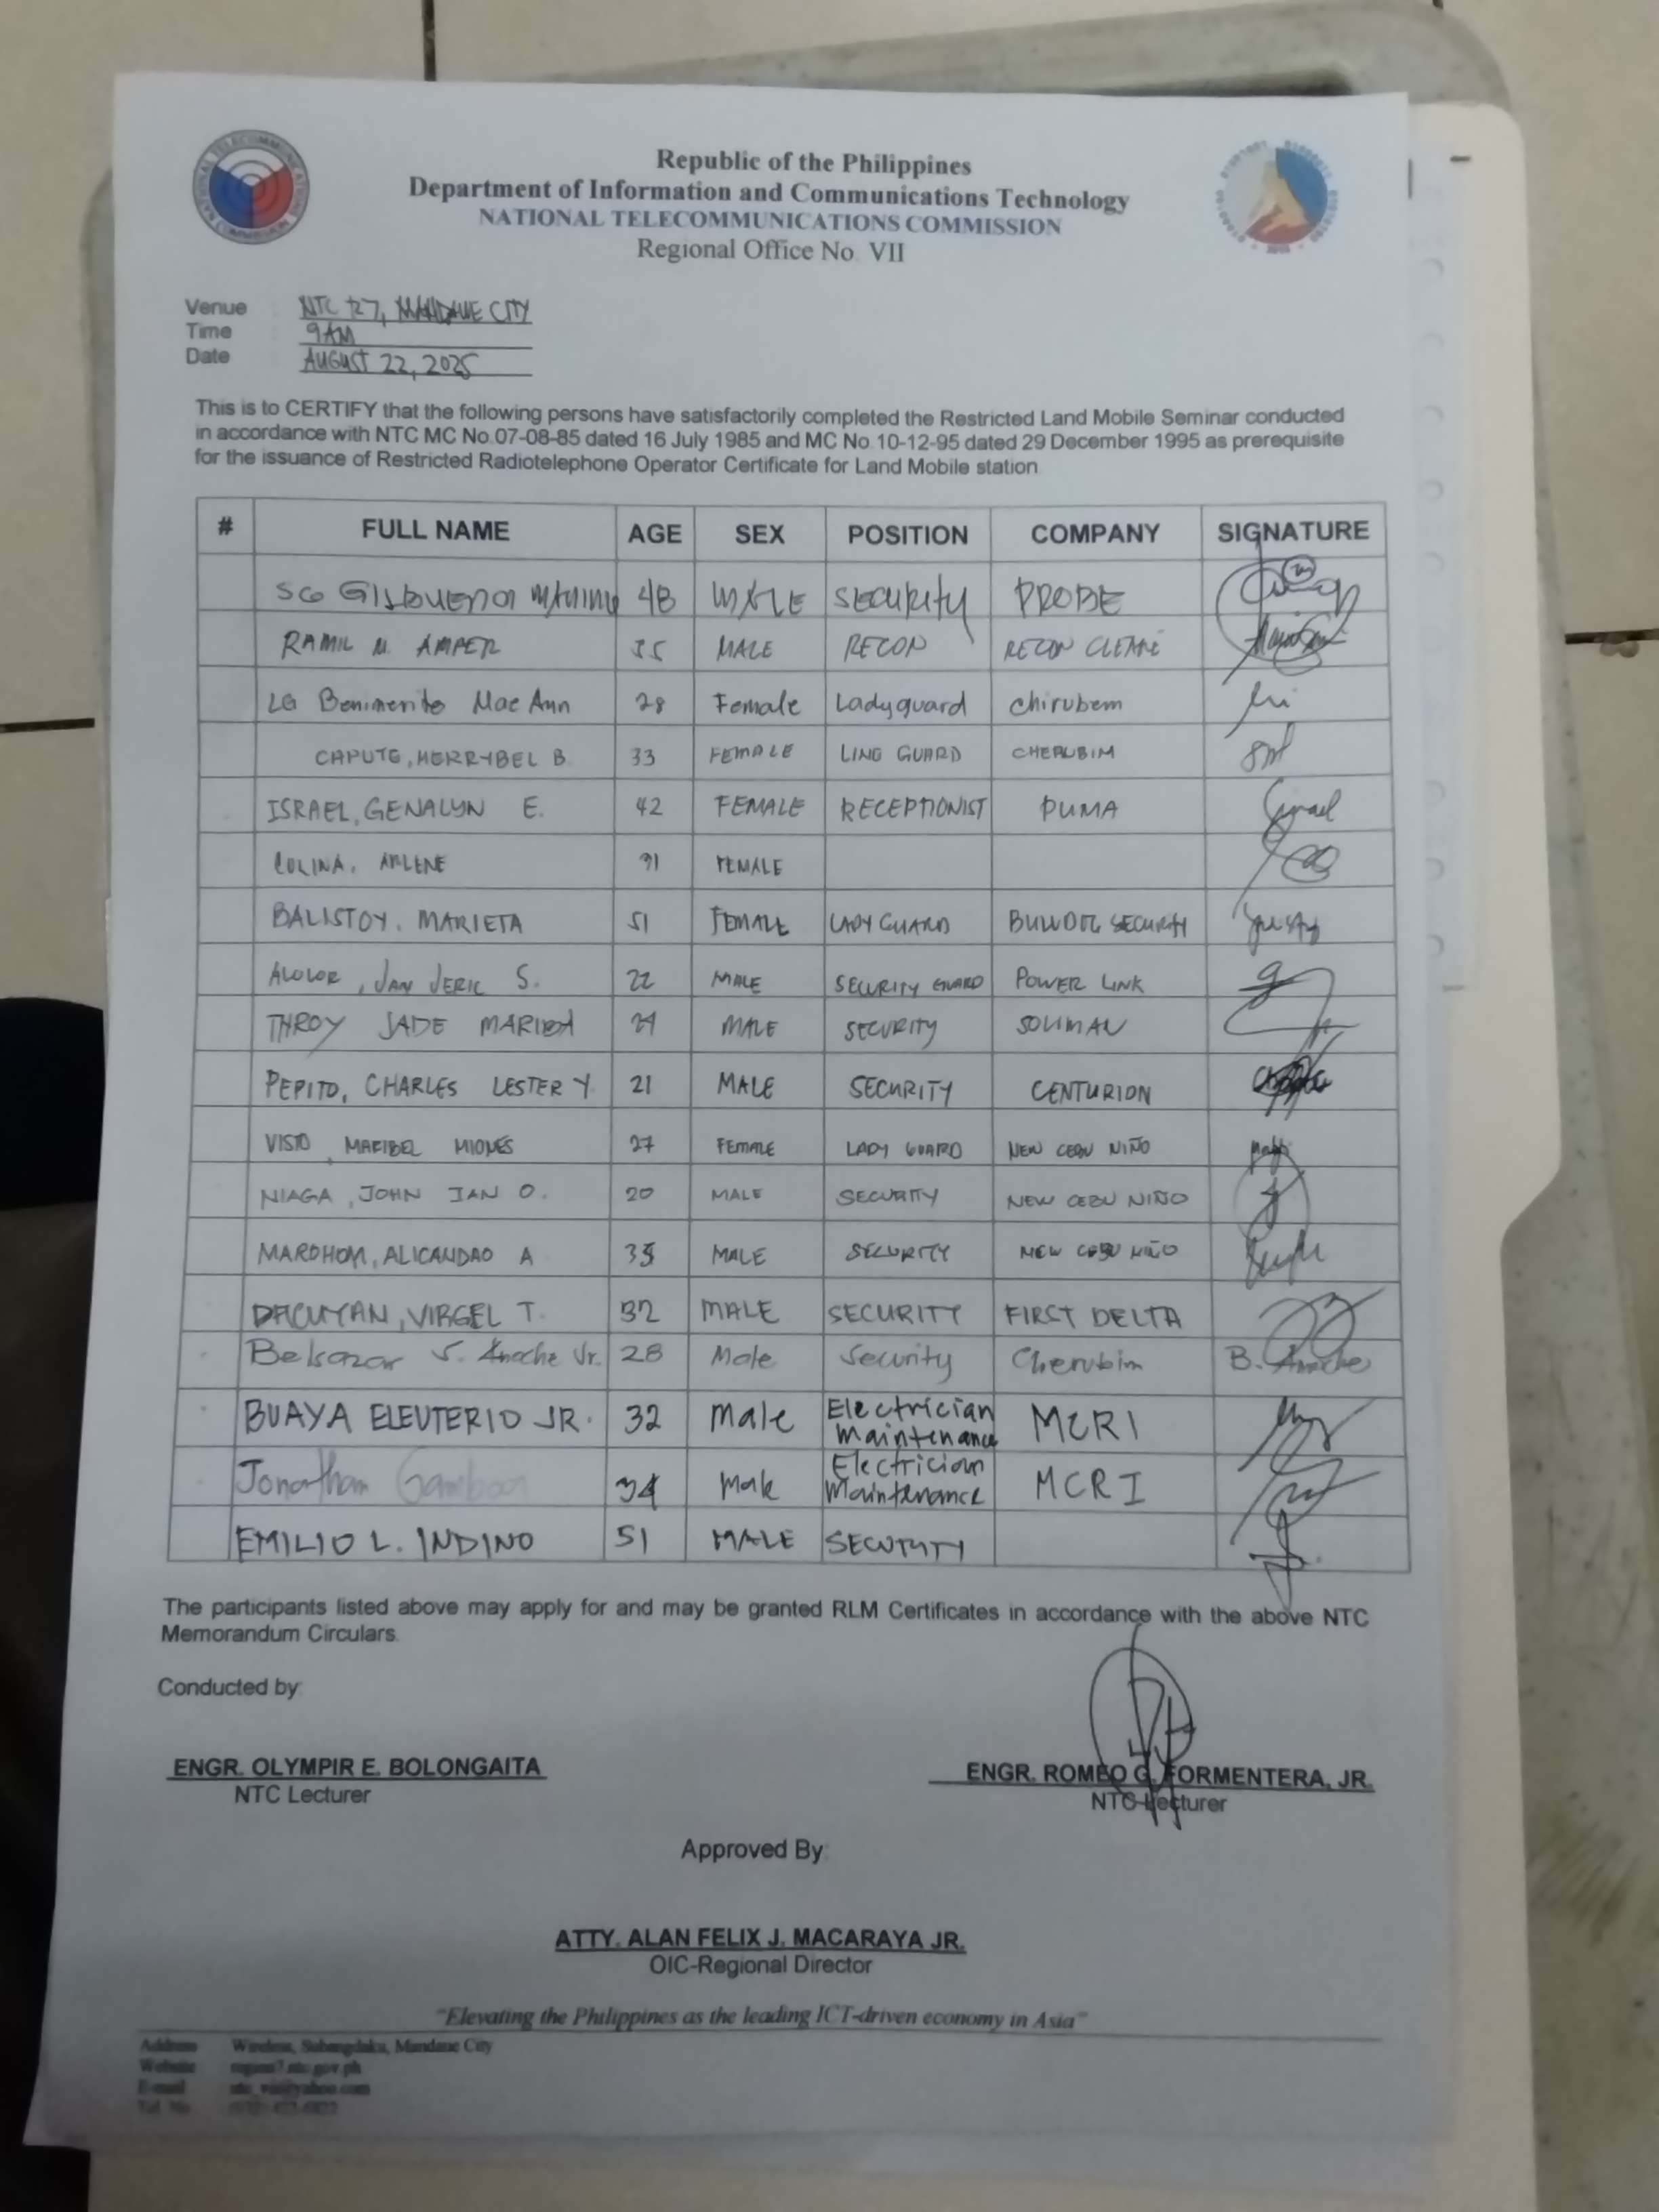 Republic of the Philippines
Department of Information and Communications Technology
NATIONAL TELECOMMUNICATIONS COMMISSION
Regional Office No. VII
Venue : NTC R7, MANDAUE CITY
Time : 9AM
Date : AUGUST 22, 2025
This is to CERTIFY that the following persons have satisfactorily completed the Restricted Land Mobile Seminar conducted
in accordance with NTC MC No.07-08-85 dated 16 July 1985 and MC No.10-12-95 dated 29 December 1995 as prerequisite
for the issuance of Restricted Radiotelephone Operator Certificate for Land Mobile station
# FULL NAME AGE SEX POSITION COMPANY SIGNATURE
SG 48 MALE SECURITY PROBE
RAMIL N. AMPER 35 MALE RECON RECON
LG Benimerito Mae Ann 28 Female Ladyguard chirubem
CAPUTE, MERRYBEL B. 33 FEMALE GUARD CHERUBIM
ISRAEL, GENALYN E. 42 FEMALE RECEPTIONIST PUMA
COLINA, ARLENE 31 FEMALE
BALISTOY, MARIETA 51 FEMALE LADY GUARD SECURITY
JAN JERIC S. 22 MALE SECURITY GUARD POWER LINK
THROY JADE 21 MALE SECURITY SOLIMAN
PEPITO, CHARLES LESTER Y. 21 MALE SECURITY CENTURION
VISTO, MARIBEL MIONES 27 FEMALE LADY GUARD NEW CEBU NIÑO
NIAGA, JOHN IAN O. 20 MALE SECURITY NEW CEBU NIÑO
MARDHOM, ALICANDAO A 35 MALE SECURITY NEW CEBU NIÑO
DACUYAN, VIRGEL T. 32 MALE SECURITY FIRST DELTA
Belsazar S. Anoche Jr. 28 Male Security Cherubim B. Anoche
BUAYA ELEUTERIO JR. 32 Male Electrician Maintenance MCRI
Jonathan Gamboa 34 Male Electrician Maintenance MCRI
EMILIO L. INDINO 51 MALE SECURITY
The participants listed above may apply for and may be granted RLM Certificates in accordance with the above NTC
Memorandum Circulars.
Conducted by:
ENGR. OLYMPIR E. BOLONGAITA
NTC Lecturer
ENGR. ROMEO G. FORMENTERA, JR.
NTC Lecturer
Approved By:
ATTY. ALAN FELIX J. MACARAYA JR.
OIC-Regional Director
"Elevating the Philippines as the leading ICT-driven economy in Asia"
Address Wireless, Subangdaku, Mandaue City
Website region7.ntc.gov.ph
E-mail
Tel. No